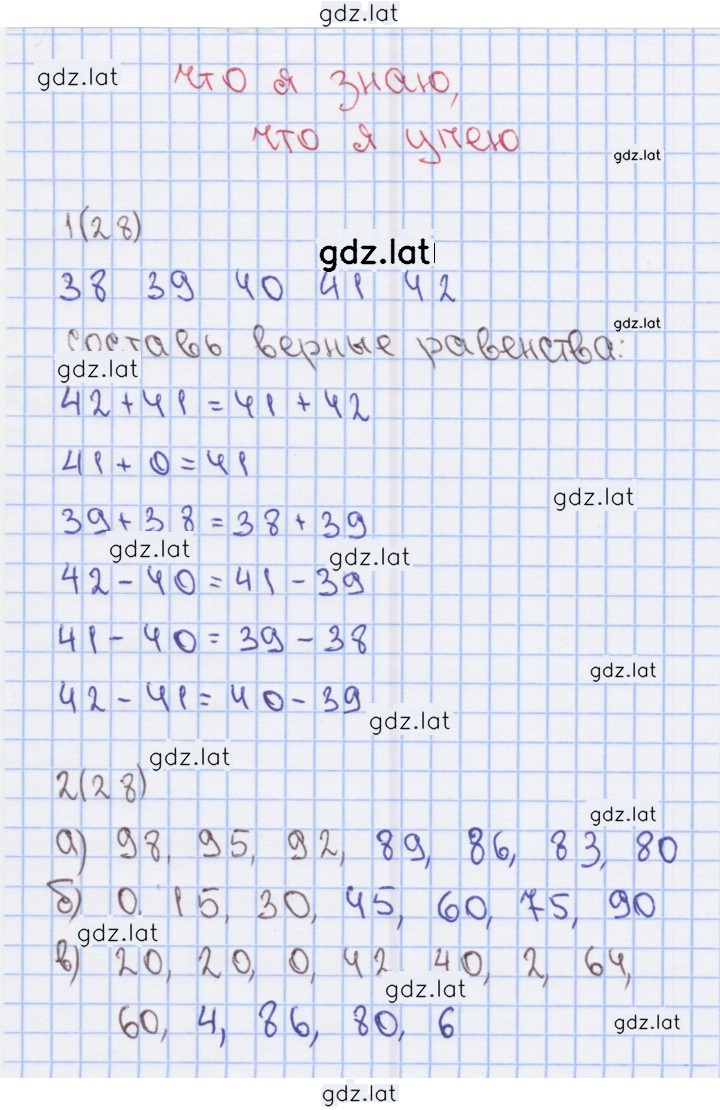 gdz.lat
gdz.lat
что я знаю,
что я умею
gdz.lat
1(28)
gdz.lat
38 39 40 41 42
gdz.lat
составь верные равенства:
gdz.lat
42 + 41 = 41 + 42
41 + 0 = 41
gdz.lat
39 + 38 = 38 + 39
gdz.lat gdz.lat
42 - 40 = 41 - 39
41 - 40 = 39 - 38
gdz.lat
42 - 41 = 40 - 39
gdz.lat
gdz.lat
2(28)
gdz.lat
а) 98, 95, 92, 89, 86, 83, 80
б) 0, 15, 30, 45, 60, 75, 90
gdz.lat
в) 20, 20, 0, 42, 40, 2, 64,
gdz.lat
60, 4, 86, 80, 6
gdz.lat
gdz.lat